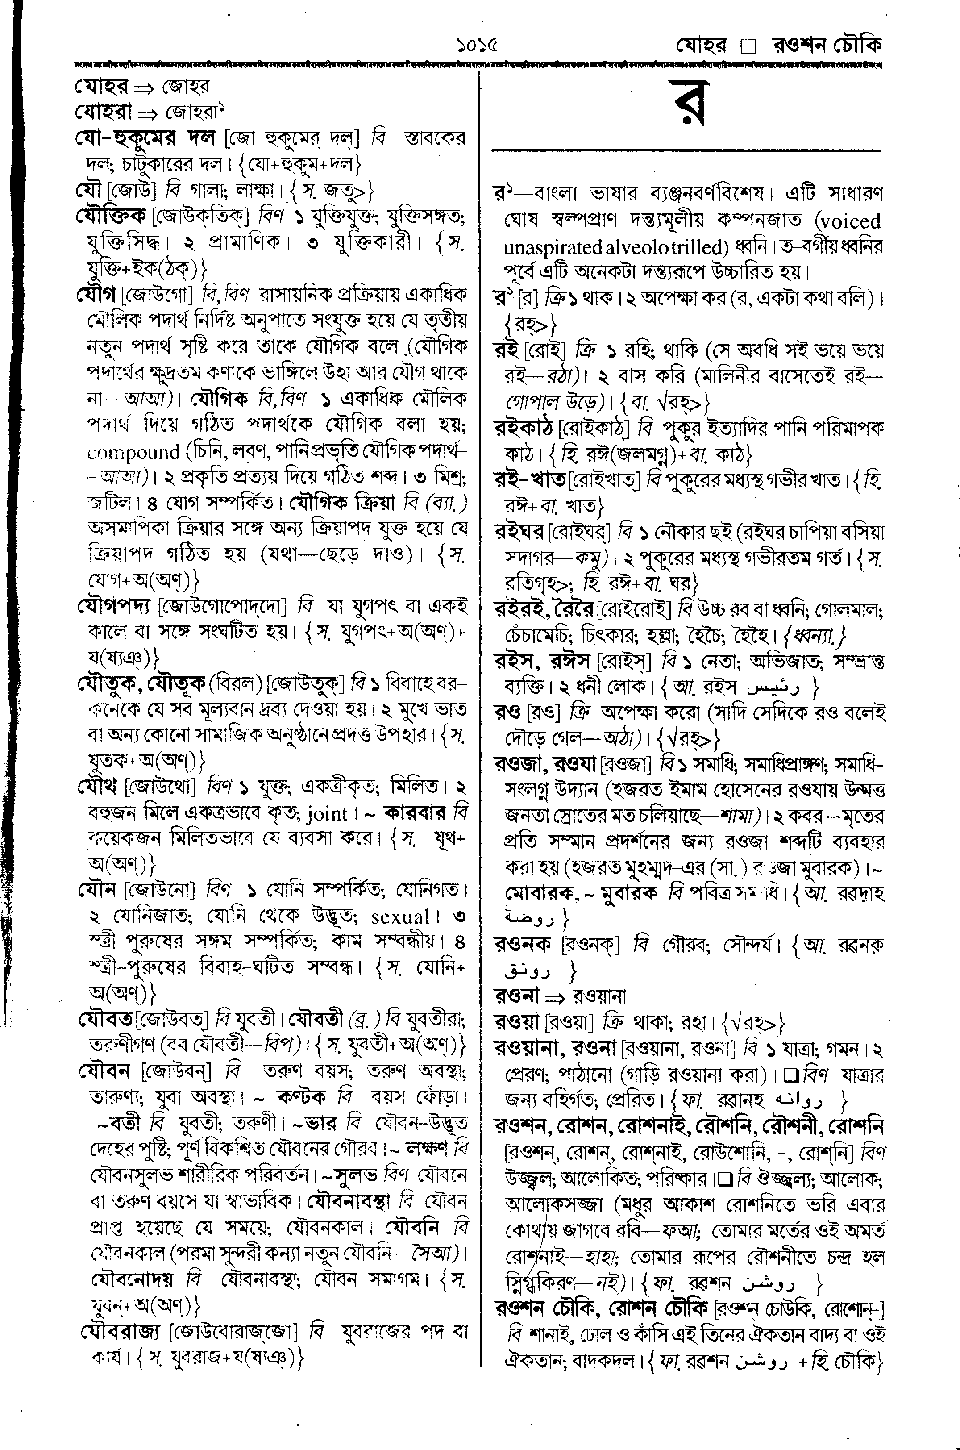 ১০১৫
যোহর □ রওশন চৌকি
যোহর ⇒ জোহর
যোহরা ⇒ জোহরা১
যো-হুকুমের দল [জো হুকুমের্ দল্] বি স্তাবকের
দল; চাটুকারের দল। {যো+হুকুম+দল}
যৌ [জোউ] বি গালা; লাক্ষা। {স. জতু>}
যৌক্তিক [জোউক্‌তিক্] বিণ ১ যুক্তিযুক্ত; যুক্তিসঙ্গত;
যুক্তিসিদ্ধ। ২ প্রামাণিক। ৩ যুক্তিকারী। {স.
যুক্তি+ইক(ঠক্)}
যৌগ [জোউগো] বি,বিণ রাসায়নিক প্রক্রিয়ায় একাধিক
মৌলিক পদার্থ নির্দিষ্ট অনুপাতে সংযুক্ত হয়ে যে তৃতীয়
নতুন পদার্থ সৃষ্টি করে তাকে যৌগিক বলে (যৌগিক
পদার্থের ক্ষুদ্রতম কণাকে ভাঙ্গিলে উহা আর যৌগ থাকে
না—আআ)। যৌগিক বি,বিণ ১ একাধিক মৌলিক
পদার্থ দিয়ে গঠিত পদার্থকে যৌগিক বলা হয়;
compound (চিনি, লবণ, পানি প্রভৃতি যৌগিক পদার্থ-
-আআ)। ২ প্রকৃতি প্রত্যয় দিয়ে গঠিত শব্দ। ৩ মিশ্র;
জটিল। ৪ যোগ সম্পর্কিত। যৌগিক ক্রিয়া বি (ব্যা.)
অসমাপিকা ক্রিয়ার সঙ্গে অন্য ক্রিয়াপদ যুক্ত হয়ে যে
ক্রিয়াপদ গঠিত হয় (যথা—ছেড়ে দাও)। {স.
যোগ+অ(অণ্)}
যৌগপদ্য [জোউগোপোদ্‌দো] বি যা যুগপৎ বা একই
কালে বা সঙ্গে সংঘটিত হয়। {স. যুগপৎ+অ(অণ্)+
য(ষ্যঞ্)}
যৌতুক, যৌতূক (বিরল) [জোউতুক্] বি ১ বিবাহে বর-
কনেকে যে সব মূল্যবান দ্রব্য দেওয়া হয়। ২ মুখে ভাত
বা অন্য কোনো সামাজিক অনুষ্ঠানে প্রদত্ত উপহার। {স.
যুতক+অ(অণ্)}
যৌথ [জোউথো] বিণ ১ যুক্ত; একত্রীকৃত; মিলিত। ২
বহুজন মিলে একত্রভাবে কৃত; joint। ~ কারবার বি
কয়েকজন মিলিতভাবে যে ব্যবসা করে। {স. যূথ+
অ(অণ্)}
যৌন [জোউনো] বিণ ১ যোনি সম্পর্কিত; যোনিগত।
২ যোনিজাত; যোনি থেকে উদ্ভূত; sexual। ৩
স্ত্রী পুরুষের সঙ্গম সম্পর্কিত; কাম সম্বন্ধীয়। ৪
স্ত্রী-পুরুষের বিবাহ-ঘটিত সম্বন্ধ। {স. যোনি+
অ(অণ্)}
যৌবত [জোউবত্] বি যুবতী। যৌবতী (ব্র.) বি যুবতীরা;
তরুণীগণ (বর যৌবতী—বিপ)। {স. যুবতী+অ(অণ্)}
যৌবন [জোউবন্] বি তরুণ বয়স; তরুণ অবস্থা;
তারুণ্য; যুবা অবস্থা। ~ কণ্টক বি বয়স ফোঁড়া।
~বতী বি যুবতী; তরুণী। ~ভার বি যৌবন-উদ্ভূত
দেহের পুষ্টি; পূর্ণ বিকশিত যৌবনের গৌরব। ~ লক্ষণ বি
যৌবনসুলভ শারীরিক পরিবর্তন। ~সুলভ বিণ যৌবনে
বা তরুণ বয়সে যা স্বাভাবিক। যৌবনাবস্থা বি যৌবন
প্রাপ্ত হয়েছে যে সময়ে; যৌবনকাল। যৌবনি বি
যৌবনকাল (পরমা সুন্দরী কন্যা নতুন যৌবনি—সৈআ)।
যৌবনোদয় বি যৌবনাবস্থা; যৌবন সমাগম। {স.
যুবন্+অ(অণ্)}
যৌবরাজ্য [জোউবোরাজ্‌জো] বি যুবরাজের পদ বা
কার্য। {স. যুবরাজ+য(ষ্যঞ্)}
র
র১—বাংলা ভাষার ব্যঞ্জনবর্ণবিশেষ। এটি সাধারণ
ঘোষ স্বল্পপ্রাণ দন্ত্যমূলীয় কম্পনজাত (voiced
unaspirated alveolo trilled) ধ্বনি। ত-বর্গীয় ধ্বনির
পূর্বে এটি অনেকটা দন্ত্যরূপে উচ্চারিত হয়।
র২ [র] ক্রি ১ থাক। ২ অপেক্ষা কর (র, একটা কথা বলি)।
{রহ্>}
রই [রোই] ক্রি ১ রহি; থাকি (সে অবধি সই ভয়ে ভয়ে
রই—রঠা)। ২ বাস করি (মালিনীর বাসেতেই রই—
গোপাল উড়ে)। {বা. √রহ্>}
রইকাঠ [রোইকাঠ্] বি পুকুর ইত্যাদির পানি পরিমাপক
কাঠ। {হি. রঈ(জলমগ্ন)+বা. কাঠ}
রই-খাত [রোইখাত্] বি পুকুরের মধ্যস্থ গভীর খাত। {হি.
রঈ+বা. খাত}
রইঘর [রোইঘর্] বি ১ নৌকার ছই (রইঘর চাপিয়া বসিয়া
সদাগর—কমু)। ২ পুকুরের মধ্যস্থ গভীরতম গর্ত। {স.
রতিগৃহ>; হি. রঈ+বা. ঘর}
রইরই, রৈরৈ [রোইরোই] বি উচ্চ রব বা ধ্বনি; গোলমাল;
চেঁচামেচি; চিৎকার; হল্লা; হৈচৈ; হৈহৈ। {ধ্বন্যা.}
রইস, রঈস [রোইস্] বি ১ নেতা; অভিজাত; সম্ভ্রান্ত
ব্যক্তি। ২ ধনী লোক। {আ. রইস رئيس }
রও [রও] ক্রি অপেক্ষা করো (সাদি সেদিকে রও বলেই
দৌড়ে গেল—অঠা)। {√রহ্>}
রওজা, রওযা [রওজা] বি ১ সমাধি; সমাধিপ্রাঙ্গণ; সমাধি-
সংলগ্ন উদ্যান (হজরত ইমাম হোসেনের রওযায় উন্মত্ত
জনতা স্রোতের মত চলিয়াছে—শামা)। ২ কবর—মৃতের
প্রতি সম্মান প্রদর্শনের জন্য রওজা শব্দটি ব্যবহার
করা হয় (হজরত মুহম্মদ-এর (সা.) রওজা মুবারক)। ~
মোবারক, ~ মুবারক বি পবিত্র সমাধি। {আ. রৱদাহ
روضة }
রওনক [রওনক্] বি গৌরব; সৌন্দর্য। {আ. রৱনক
رونق }
রওনা ⇒ রওয়ানা
রওয়া [রওয়া] ক্রি থাকা; রহা। {√রহ্>}
রওয়ানা, রওনা [রওয়ানা, রওনা] বি ১ যাত্রা; গমন। ২
প্রেরণ; পাঠানো (গাড়ি রওয়ানা করা)। □ বিণ যাত্রার
জন্য বহির্গত; প্রেরিত। {ফা. রৱানহ روانه }
রওশন, রোশন, রোশনাই, রৌশনি, রৌশনী, রোশনি
[রওশন্, রোশন্, রোশ্‌নাই, রোউশোনি, -, রোশ্‌নি] বিণ
উজ্জ্বল; আলোকিত; পরিষ্কার। □ বি ঔজ্জ্বল্য; আলোক;
আলোকসজ্জা (মধুর আকাশ রোশনিতে ভরি এবার
কোথায় জাগবে রবি—ফআ; তোমার মর্তের ওই অমর্ত
রোশনাই—হাহা; তোমার রূপের রৌশনীতে চন্দ্র হল
স্নিগ্ধকিরণ—নই)। {ফা. রৱশন روشن }
রওশন চৌকি, রোশন চৌকি [রওশন্ চোউকি, রোশোন্-]
বি শানাই, ঢোল ও কাঁসি এই তিনের ঐকতান বাদ্য বা ওই
ঐকতান; বাদকদল। {ফা. রৱশন روشن + হি চৌকি}